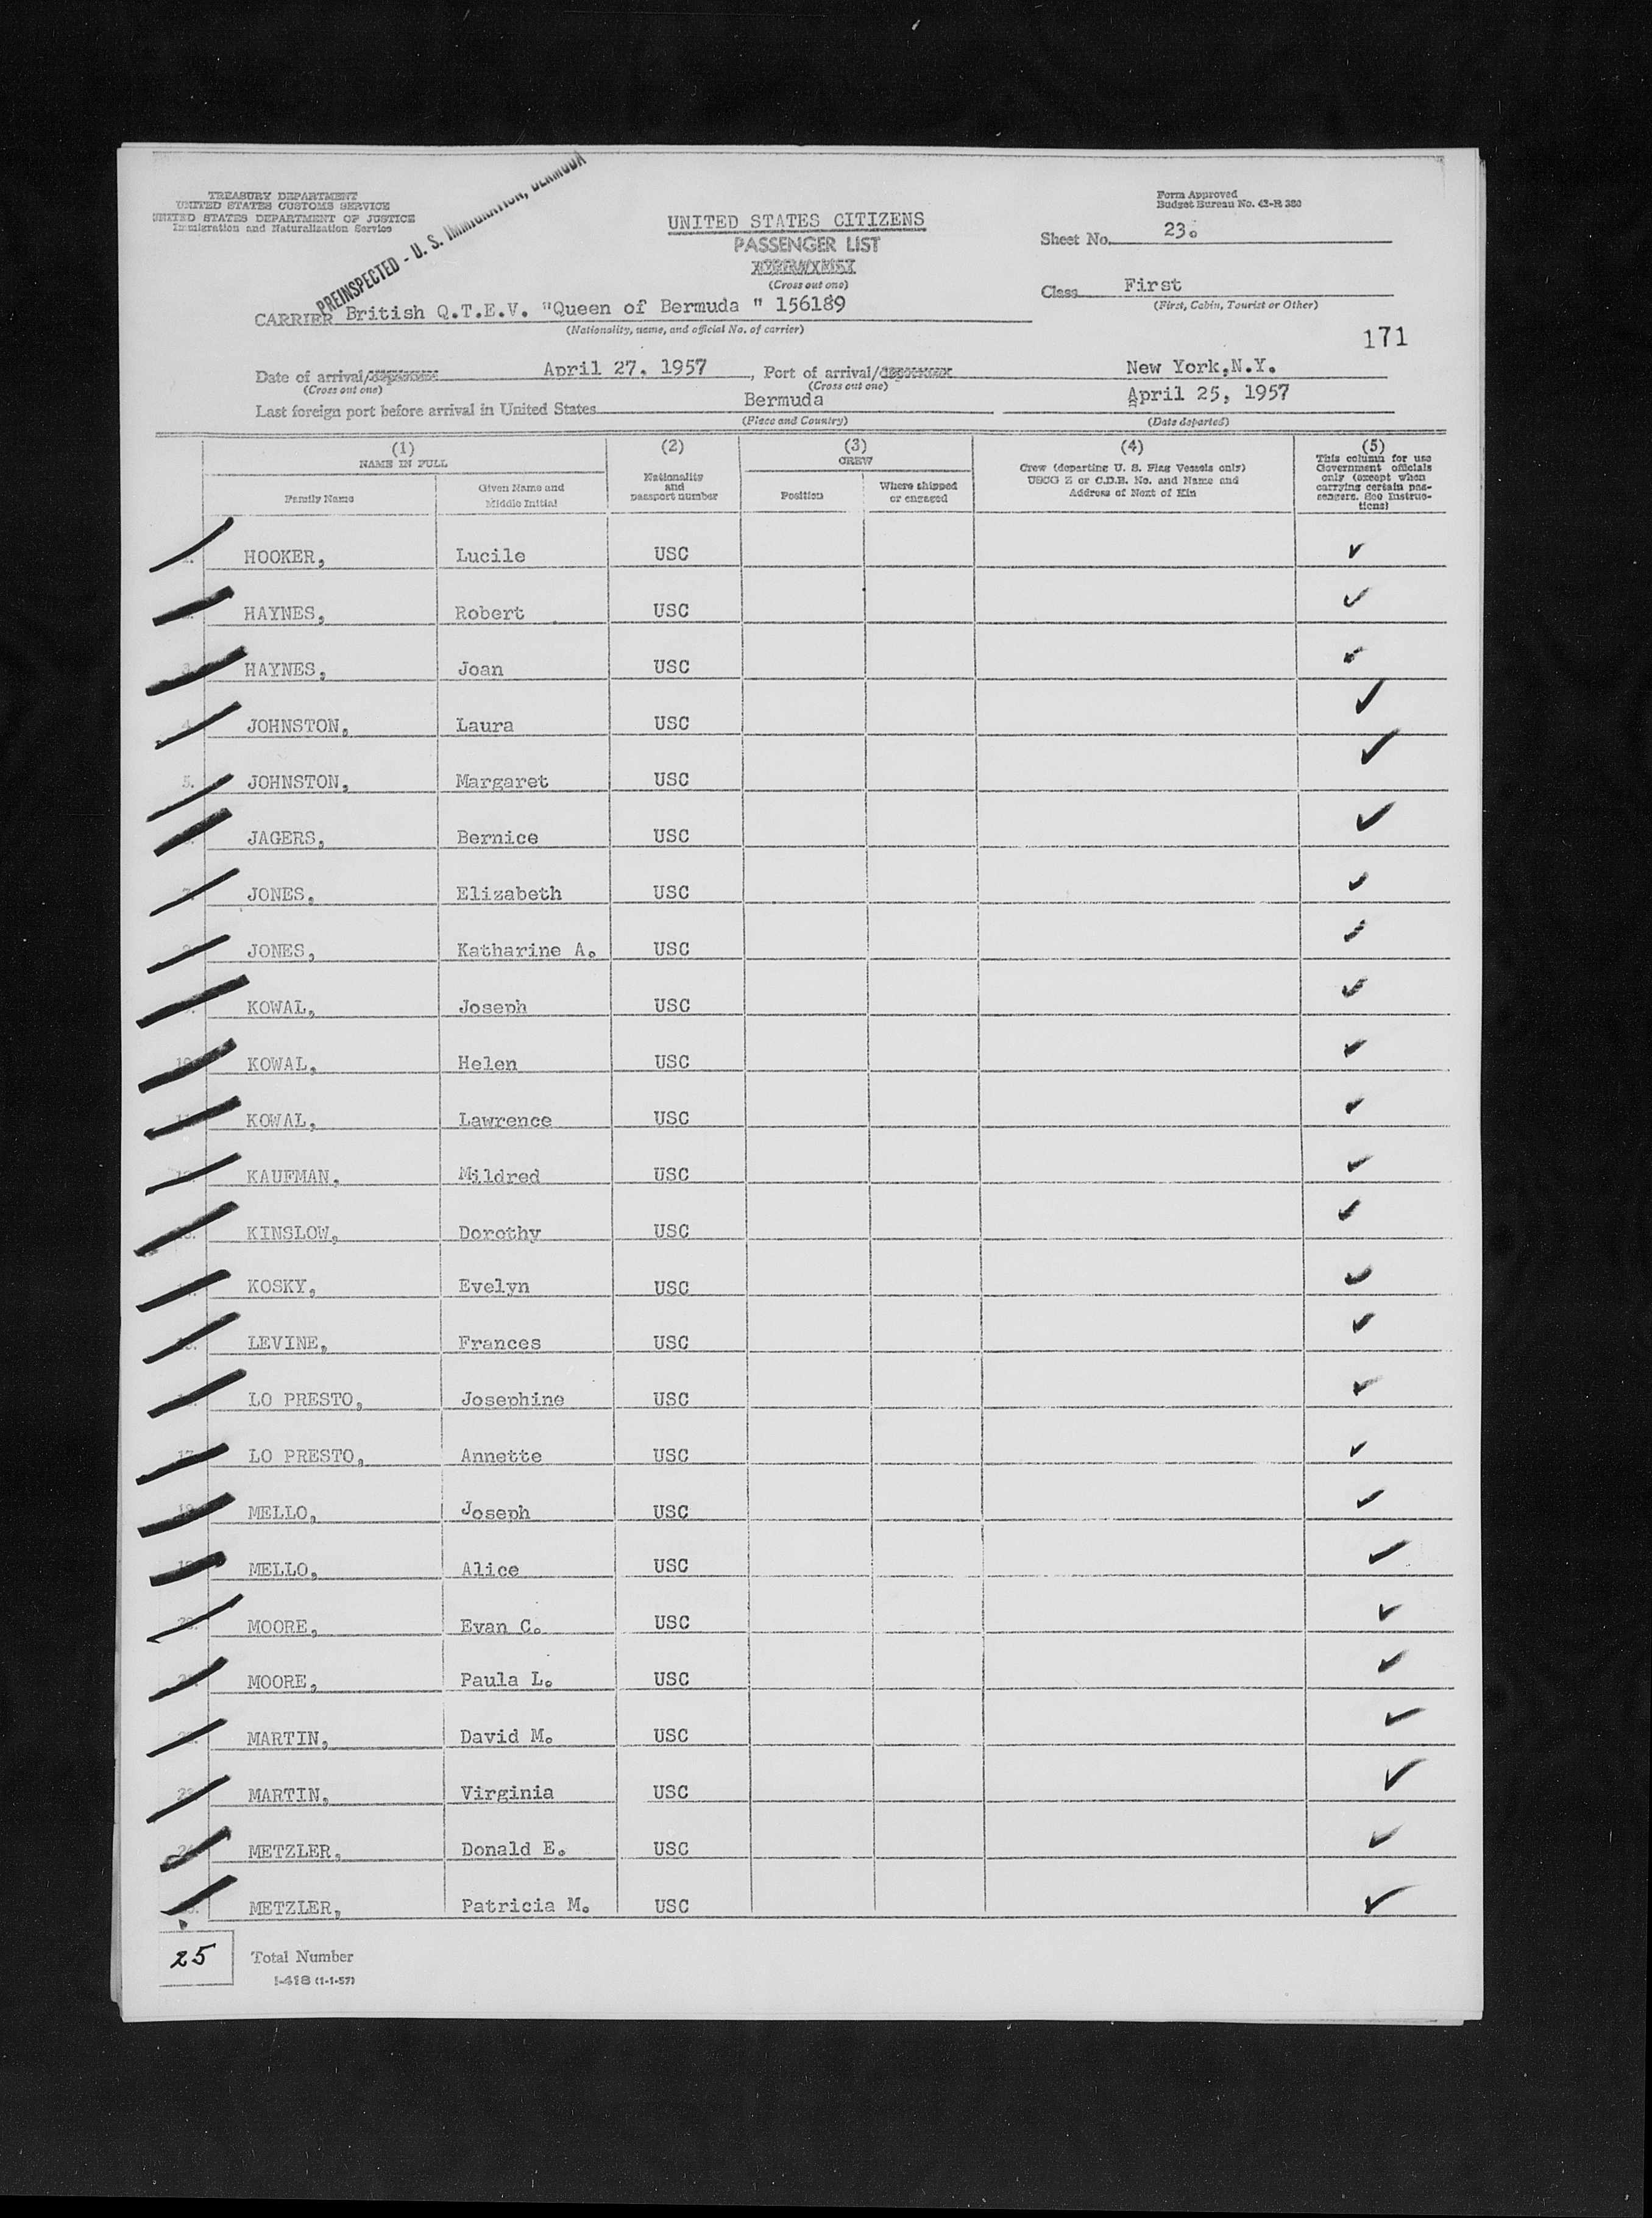 TREASURY DEPARTMENT
UNITED STATES CUSTOMS SERVICE
UNITED STATES DEPARTMENT OF JUSTICE
Immigration and Naturalization Service
PREINSPECTED - U. S. IMMIGRATION, BERMUDA
UNITED STATES CITIZENS
PASSENGER LIST
(Cross out one)
Form Approved
Budget Bureau No. 43-R 380
Sheet No. 23.
Class First
(First, Cabin, Tourist or Other)
CARRIER British Q.T.E.V. "Queen of Bermuda " 156189
(Nationality, name, and official No. of carrier)
171
Date of arrival/ April 27, 1957, Port of arrival/ New York,N.Y.
(Cross out one) (Cross out one)
Last foreign port before arrival in United States Bermuda April 25, 1957
(Place and Country) (Date departed)
(1) (2) (3) (4) (5)
NAME IN FULL
Family Name
Given Name and Middle Initial
Nationality and passport number
CREW
Position
Where shipped or engaged
Crew (departing U. S. Flag Vessels only)
USCG Z or C.D.B. No. and Name and
Address of Next of Kin
This column for use
Government officials
only (except when
carrying certain pas-
sengers. See Instruc-
tions)
HOOKER, Lucile USC ✓
HAYNES, Robert USC ✓
3. HAYNES, Joan USC ✓
4. JOHNSTON, Laura USC ✓
5. JOHNSTON, Margaret USC ✓
JAGERS, Bernice USC ✓
7. JONES, Elizabeth USC ✓
JONES, Katharine A. USC ✓
KOWAL, Joseph USC ✓
10. KOWAL, Helen USC ✓
11. KOWAL, Lawrence USC ✓
12. KAUFMAN, Mildred USC ✓
KINSLOW, Dorothy USC ✓
KOSKY, Evelyn USC ✓
LEVINE, Frances USC ✓
LO PRESTO, Josephine USC ✓
17. LO PRESTO, Annette USC ✓
18. MELLO, Joseph USC ✓
19. MELLO, Alice USC ✓
20. MOORE, Evan C. USC ✓
MOORE, Paula L. USC ✓
MARTIN, David M. USC ✓
23. MARTIN, Virginia USC ✓
24. METZLER, Donald E. USC ✓
METZLER, Patricia M. USC ✓
25 Total Number
I-418 (1-1-57)